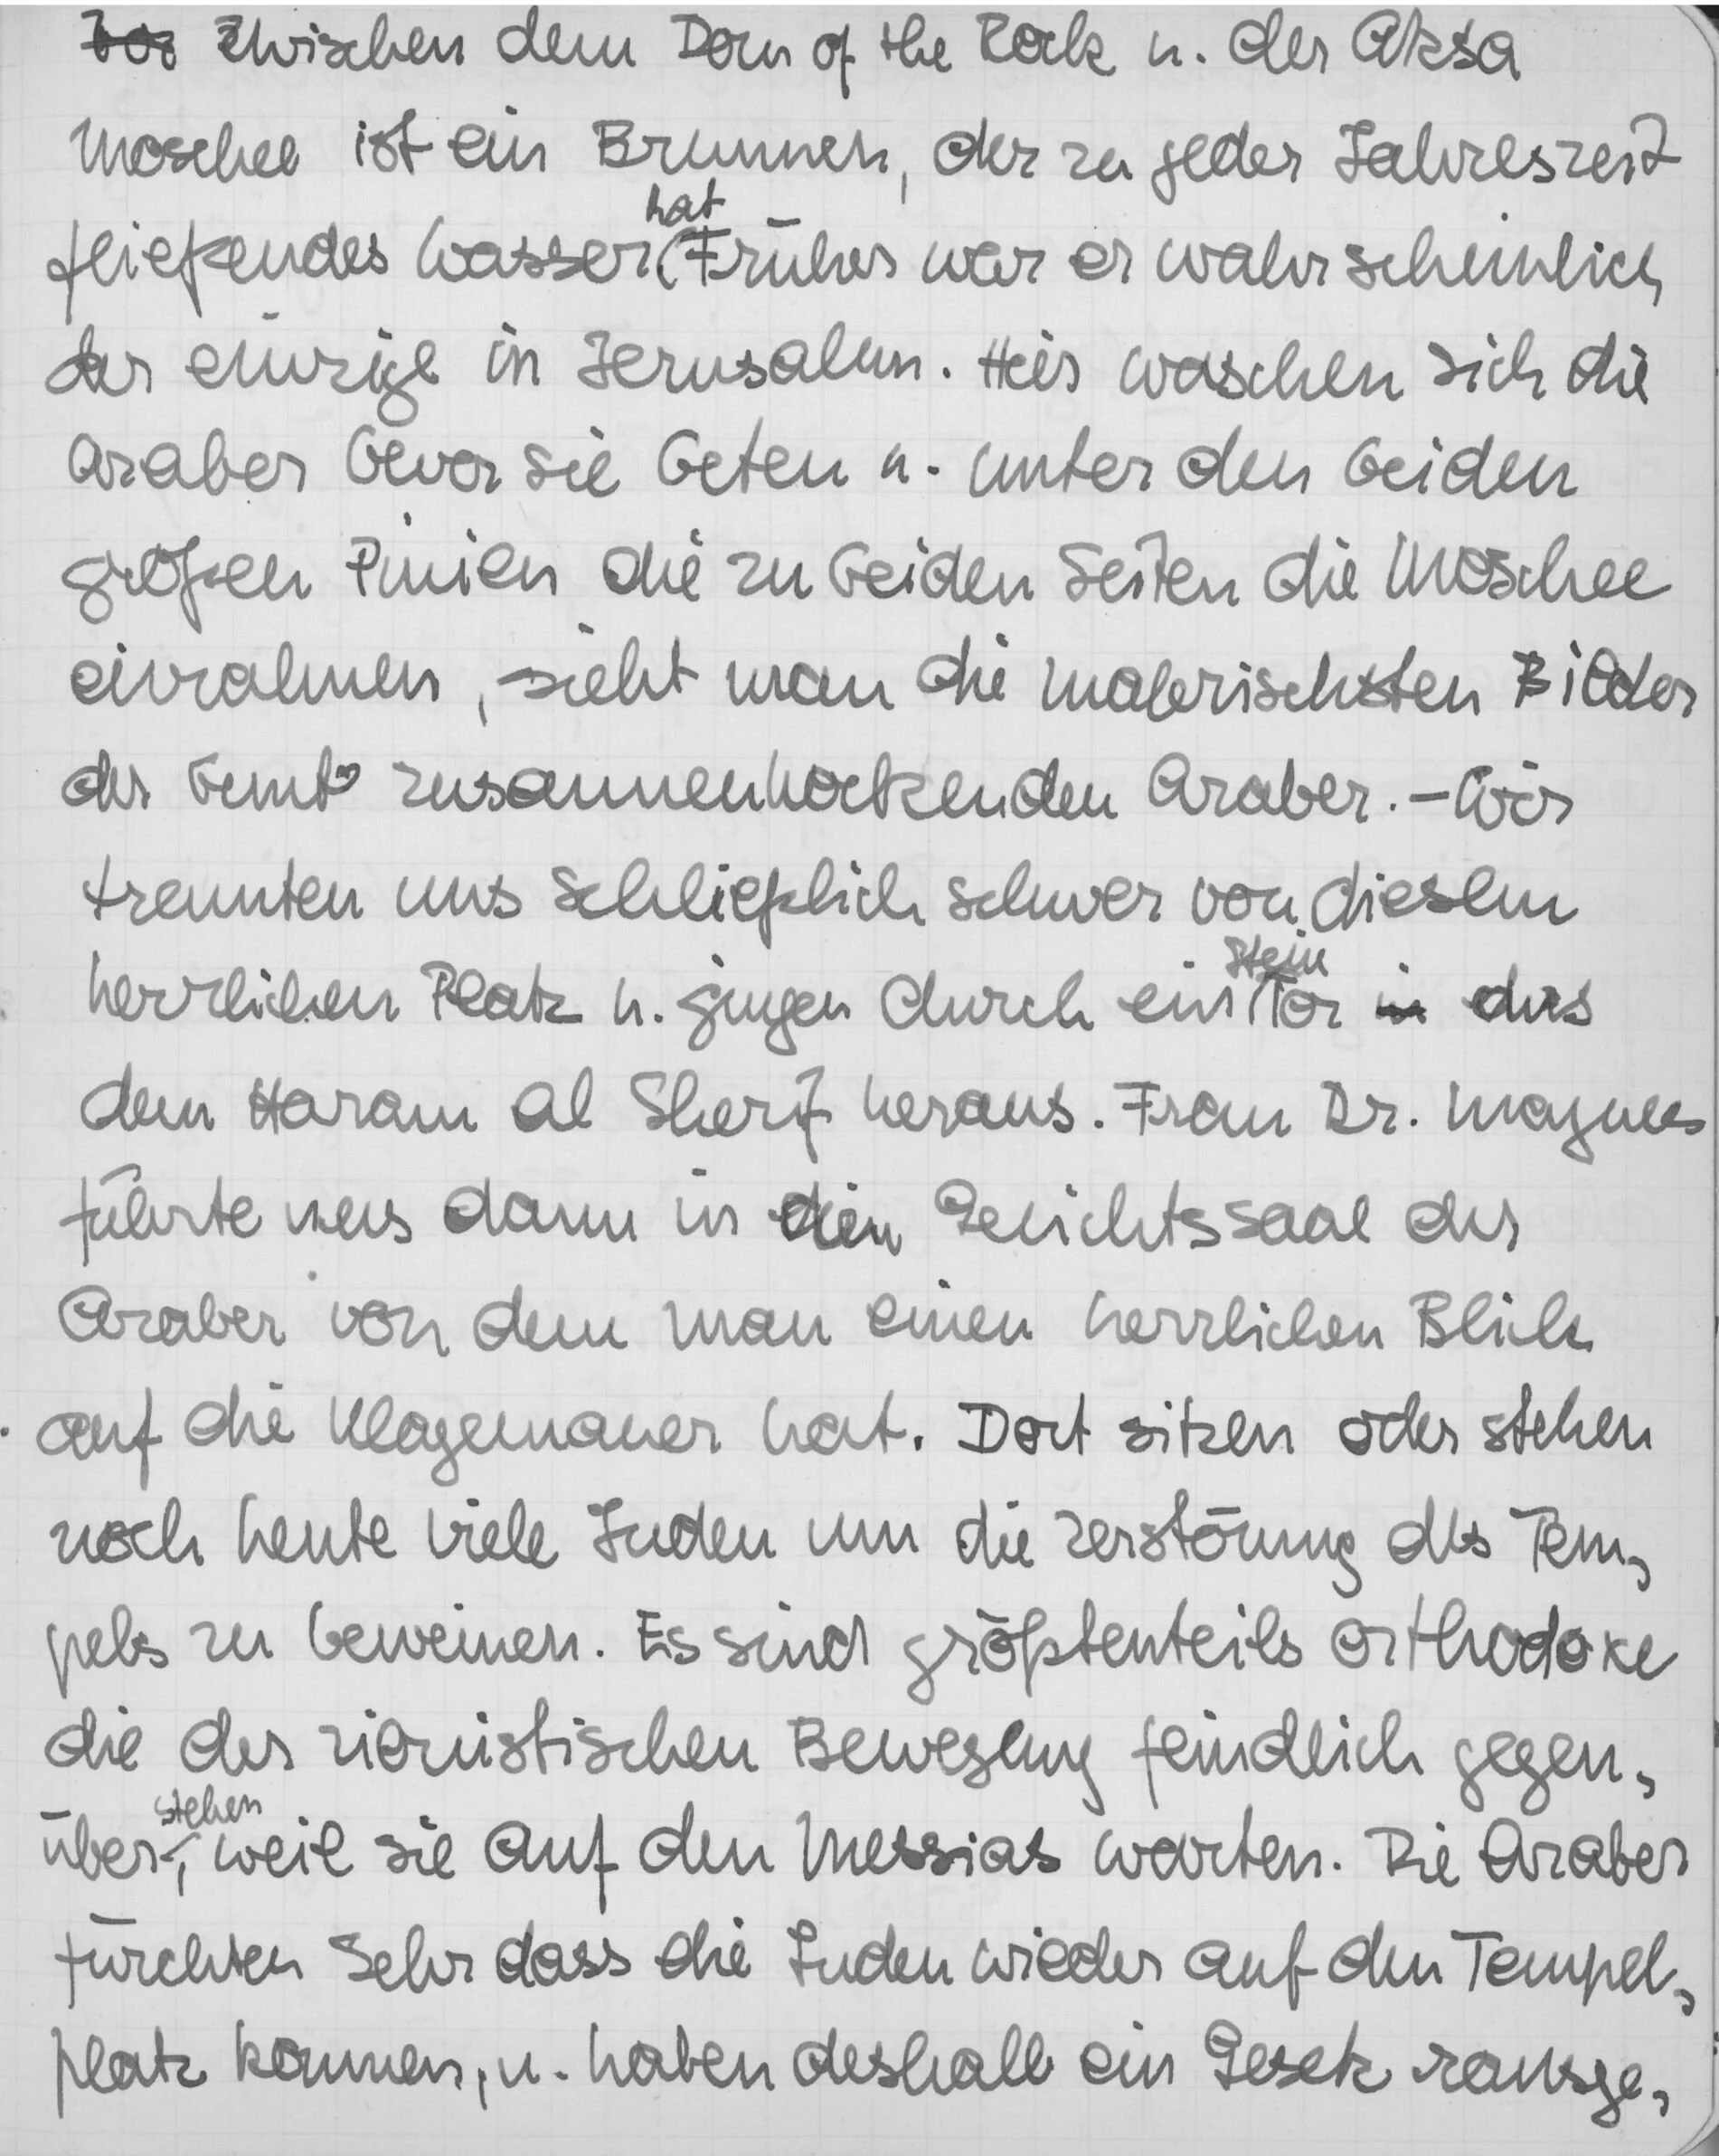 Vor Zwischen dem Dom of the Rock u. der Aksa
Moschee ist ein Brunnen, der zu jeder Jahreszeit
fließendes Wasser hat (Früher war er wahrscheinlich
der einzige in Jerusalem. Hier waschen sich die
Araber bevor sie beten u. unter den beiden
großen Pinien die zu beiden Seiten die Moschee
einrahmen, sieht man die malerischsten Bilder
der bunt zusammenhockenden Araber. – Wir
trennten uns schließlich schwer von diesem
herrlichen Platz u. gingen durch ein Stein Tor in aus
dem Haram al Sherif heraus. Frau Dr. Magnes
führte uns dann in den Gerichtssaal der
Araber von dem man einen herrlichen Blick
auf die Klagemauer hat. Dort sitzen oder stehen
noch heute viele Juden um die Zerstörung des Tem-
pels zu beweinen. Es sind größtenteils orthodoxe
die der zionistischen Bewegung feindlich gegen-
über stehen, weil sie auf den Messias warten. Die Araber
fürchten sehr dass die Juden wieder auf den Tempel-
platz kommen, u. haben deshalb ein Gesetz rausge-